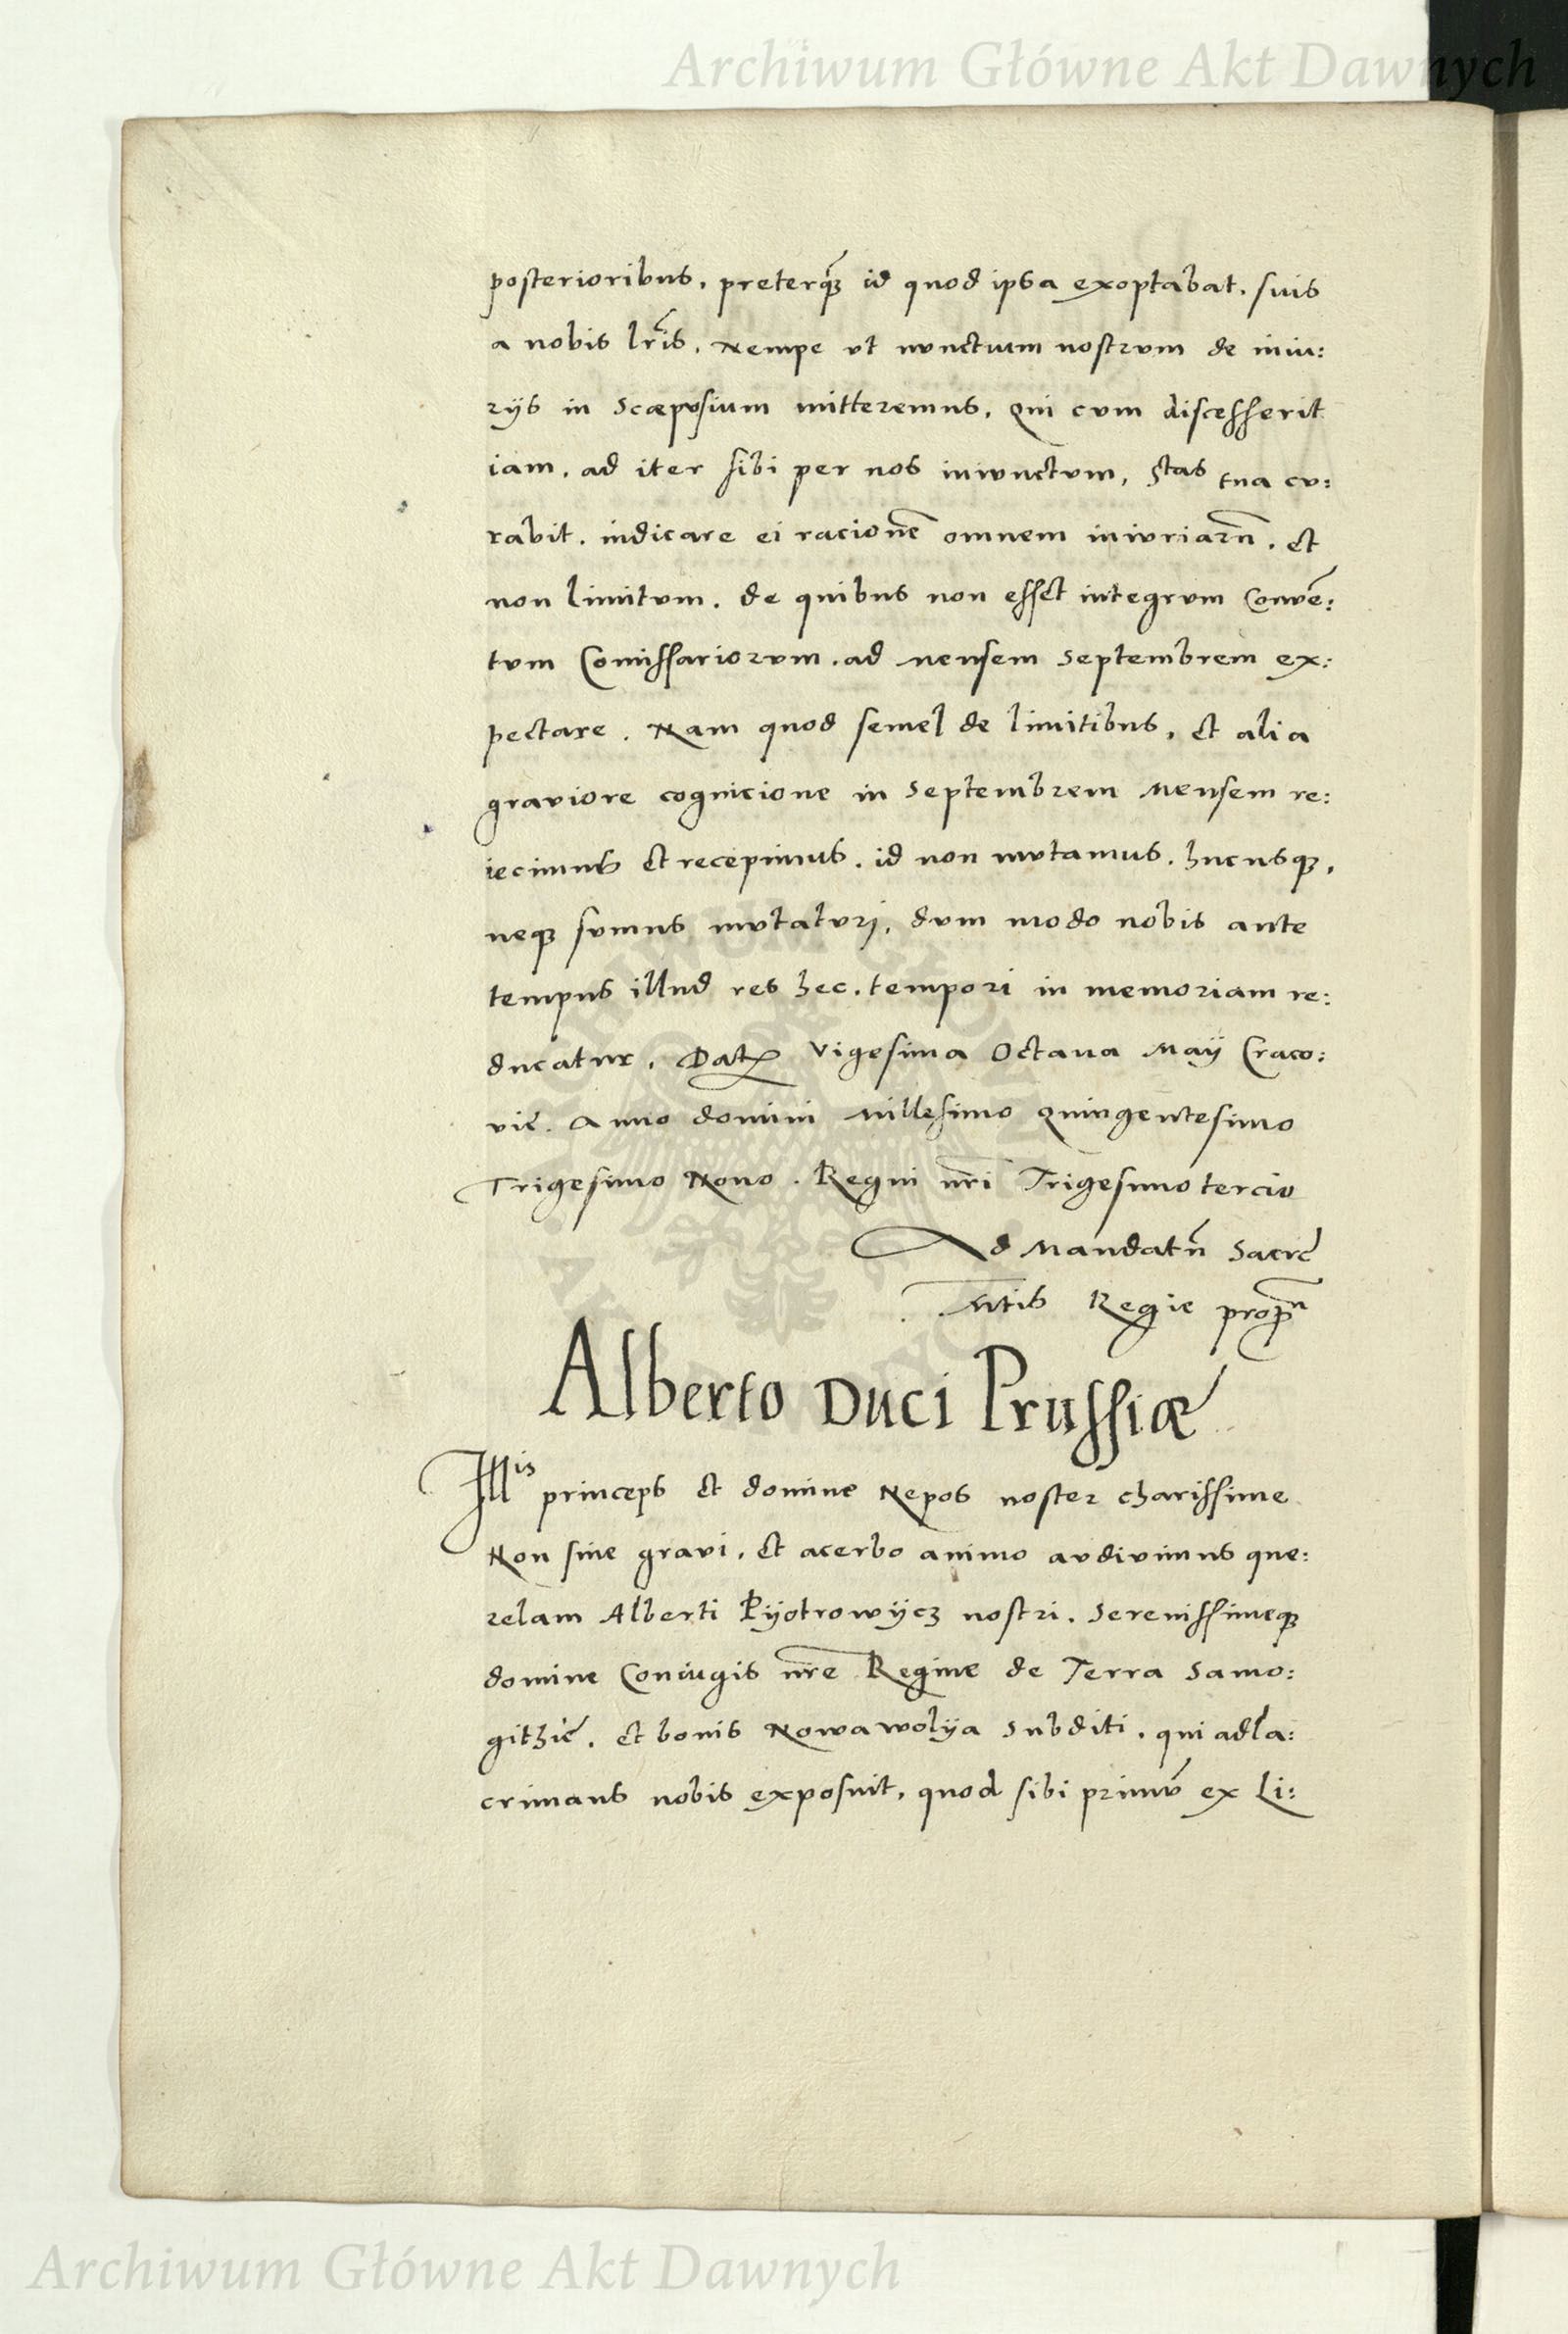 Archiwum Główne Akt Dawnych
posterioribus, preterq̃ȝ id quod ipsa exoptabat. suis
a nobis lr̃is. Nempe ut nunctium nostrum de iniu:
rijs in Scæpusium mitteremus, qui cum discesserit
iam, ad iter sibi per nos iniunctum, Stas tua cu:
rabit. indicare ei racionẽ omnem iniuriarũ. et
non limitum. de quibus non esset integrum Convẽ:
tum Comissariorum. ad Mensem Septembrem ex:
pectare. Nam quod semel de limitibus, et alia
graviore cognicione in Septembrem Mensem re:
iecimus et recepimus. id non mutamus. hucusqȝ,
neqȝ sumus mutaturj, dum modo nobis ante
tempus illud res hec. tempori in memoriam re:
ducatur. Datꝭ Vigesima Octava Maÿ Craco:
vię. Anno domini Millesimo Quingentesimo
Trigesimo Nono. Regni nr̃i Trigesimo tercio
Ad Mandatũ Sacrę
Mtis Regie propũ
Alberto Duci Prussiæ
Illis princeps et domine Nepos noster charissime
Non sine gravi, et acerbo animo audivimus que:
relam Alberti Pÿotrowÿcȝ nostri. Serenissimeqȝ
domine Coniugis nr̃e Regine de Terra Samo:
githię. et bonis Nowawolÿa Subditi. qui adla:
crimans nobis exposuit, quod sibi primũ ex Li:
Archiwum Główne Akt Dawnych